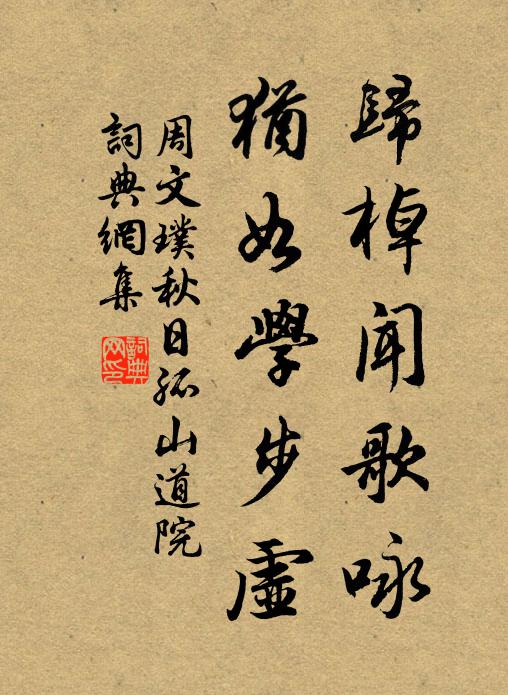 歸棹聞歌咏
猶如學步虛
周文璞秋日孤山道院
詞典網集
詞典
网印